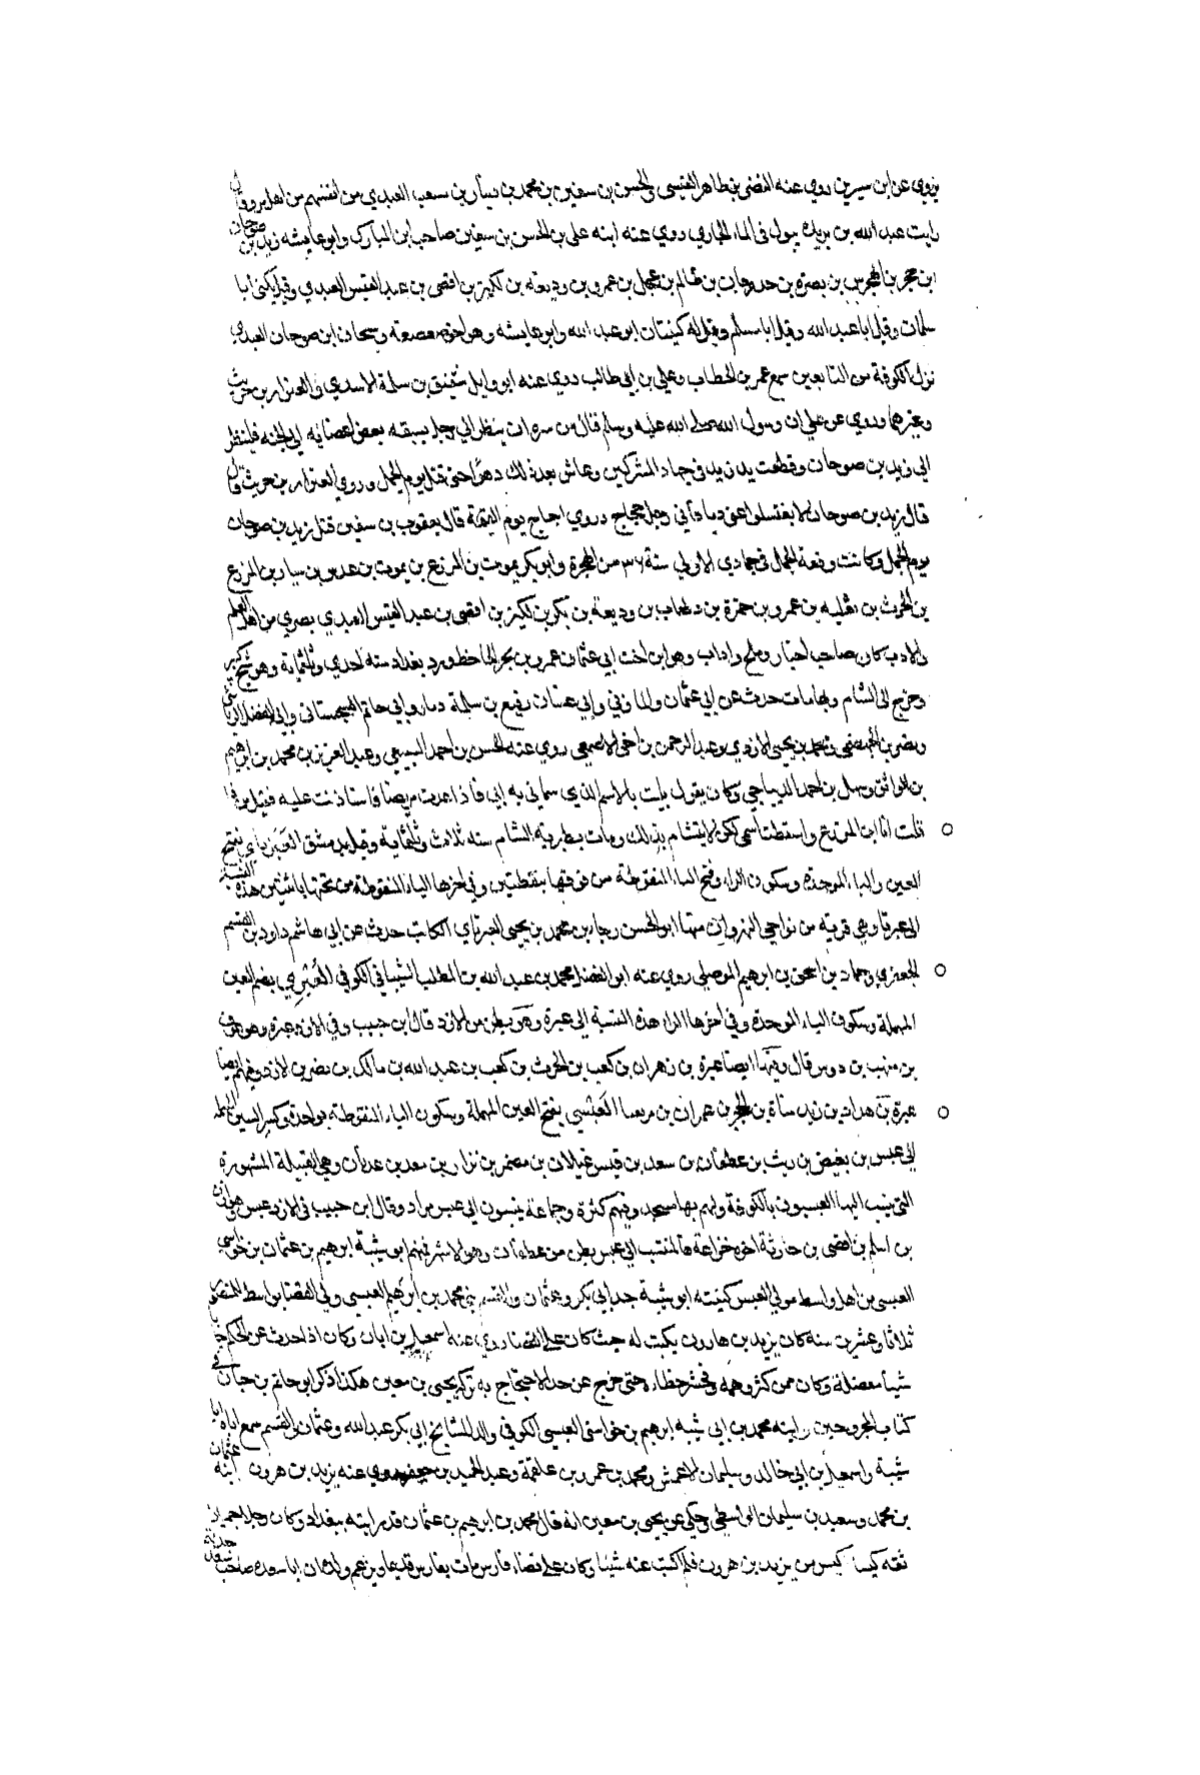 يروي عن ابن سيرين روي عنه الفضل بن طاهر القيسي والحسن بن سفين بن محمد بن دينار بن سعيد العبدي من انفسهم من اهل مرو قال
رايت عبد الله بن بريده يبول في الماء الجاري روي عنه ابنه علي بن الحسن بن سفين صاحب ابن المبارك وابو عايشه زيد بن صوحان
ابن حجر بن الهجرس بن بصره بن حدرجان بن ظالم بن عجل بن عمرو بن وديعه بن لكيز بن افصى بن عبد القيس العبدي وقيل يكنى ابا
سلمان وقيل ابا عبد الله وقيل ابا مسلم وقيل له كنيتان ابو عبد الله وابو عايشه وهو اخو صعصعه وسحان ابن صوحان العبدي
نزل الكوفة من التابعين سمع عمر بن الخطاب وعلي بن ابي طالب روي عنه ابو وايل شقيق بن سلمة الاسدي والعيزار بن حريث
وغيرهما وروي عن علي ان رسول الله صلى الله عليه وسلم قال من سره ان ينظر الي رجل يسبقه بعض اعضايه الي الجنه فلينظر
الي زيد بن صوحان وقطعت يد زيد في جهاد المشركين وعاش بعد ذلك دهرا حتى قتل يوم الجمل وروي العيزار بن حريث قال
قال زيد بن صوحان لا تغسلوا عني دما فاني رجل حجاج وروي احاج يوم القيمة قال يعقوب بن سفين قتل زيد بن صوحان
يوم الجمل وكانت وقعة الجمل في جمادي الاولي سنة ٣٦ من الهجرة وابو بكر يموت بن المزرع بن يموت بن عدس بن سيار بن المزرع
بن الحرث بن ثعلبه بن عمرو بن حمزة بن دلهاب بن وديعة بن بكر بن لكيز بن افصى بن عبد القيس العبدي بصري من اهل العلم
والادب كان صاحب اخبار وملح واداب وهو ابن اخت ابي عثمان عمرو بن بحر الجاحظ ورد بغداد سنه احدي وثلثماية وهو شيخ كبير
وخرج الى الشام وبها مات حدث عن ابي عثمان المازني وابي غسان رفيع بن سلمة دماد وابي حاتم السجستاني وابي الفضل الرياشي
ونصر بن الجهضمي ومحمد بن يحيى الازدي وعبد الرحمن بن اخي الاصمعي روي عنه الحسن بن احمد السبيعي وعبد العزيز بن محمد بن ابرهيم
بن الواثق وسهل بن احمد الديباجي وكان يقول بليت بالاسم الذي سماني به ابي فاذا عدت مريضا فاستاذنت عليه فقيل من ذا
قلت انا ابن المزرع واسقطت اسمي لكي لا يتشام بذلك ومات بطبرية الشام سنه ثلاث وثلثماية وقيل بدمشق العبرتاي بفتح
العين والباء الموحدة وسكون الراء وفتح التاء المنقوطة من فوقها بنقطتين وفي اخرها الياء المنقوطة من تحتها باثنتين هذه النسبة
الى عبرتا وهي قرية من نواحي النهروان منها ابو الحسن رجا بن محمد بن يحيى العبرتاي الكاتب حدث عن ابي هاشم داود بن القسم
الجعفري وحماد بن اسحق بن ابرهيم الموصلي روي عنه ابو الفضل محمد بن عبد الله بن المطلب الشيباني الكوفي العُبْري بضم العين
المهملة وسكون الباء الموحدة وفي اخرها الراء هذه النسبة الى عبرة وهو بطن من الازد قال ابن حبيب وفي الازد عبرة وهو عوف
بن منهب بن دوس قال وفيها ايضا عبرة بن زهران بن كعب بن الحرث بن كعب بن عبد الله بن مالك بن نصر بن الازد وفيهم ايضا
عبرة بن هداد بن زيد مناة بن الحجر بن عمران بن العَبْسي بفتح العين المهملة وسكون الباء المنقوطة بواحدة وكسر السين المهملة
الي عبس بن بغيض بن ريث بن غطفان بن سعد بن قيس غيلان بن مضر بن نزار بن معد بن عدنان وهي القبيلة المشهورة
التي ينسب اليها العبسيون بالكوفة ولهم بها مسجد وفيهم كثرة وجماعة ينسبون الى عبس مراد وقال ابن حبيب في الازد عبس هوازن
بن اسلم بن افصى بن حارثة اخوه خزاعة فالمنتسب الى عبس بطن من غطفان وهو الاشهر فمنهم ابو شيبة ابرهيم بن عثمان بن خواستي
العبسي من اهل واسط مولي العبس كنيته ابو شيبة جد ابي بكر وعثمان والقسم بني محمد بن ابرهيم العبسي ولي القضا بواسط للمنصور
ثلاثا وعشرين سنه كان يزيد بن هارون يكتب له حيث كان علي القضا روي عنه اسمعيل بن ابان وكان اذا حدث عن الحكم جا
شيا معضلة وكان ممن كثر وهمه وفحش خطاه حتى خرج عن حد الاحتجاج به تركه يحيى بن معين هكذا ذكر ابو حاتم بن حبان في
كتاب المجروحين وابنه محمد بن ابي شيبه ابرهيم بن خواستي العبسي الكوفي والد المشايخ ابي بكر عبد الله وعثمان والقسم سمع اباه ابا
شيبة واسمعيل بن ابي خالد وسليمان الاعمش ومحمد بن عمرو بن علقمة وعبد الحميد بن جعفر روي عنه يزيد بن هرون ابنه عثمان
بن محمد وسعيد بن سليمان الواسطي وحكي عن يحيى بن معين انه قال محمد بن ابرهيم بن عثمان قد رايته ببغداد وكان رجلا جميلا
ثقه كيسا اكيس من يزيد بن هرون فلم اكتب عنه شيئا وكان على قضاء فارس مات بفارس قديما وزعم ولده ان ابا سعده صاحب حديث شعبه